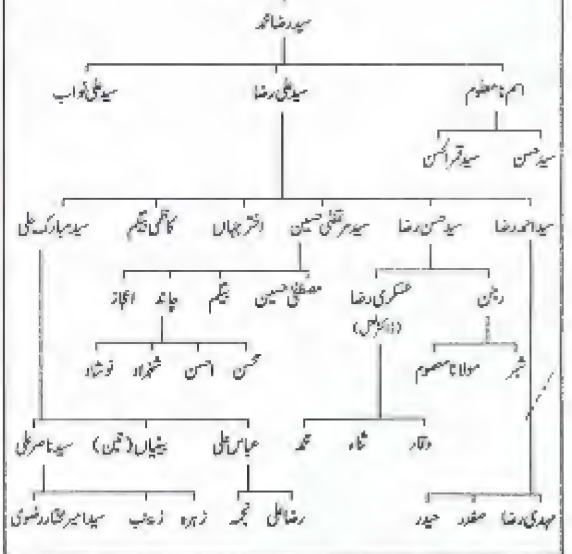 سید رضا محمد
اسم نامعلوم سید علی رضا سید علی نواب
سید حسن سید قمر الحسن
سید احمد رضا سید حسن رضا سید مرتضیٰ حسین اختر جہاں کاظمی بیگم سید مبارک علی
رجن عسکری رضا مصطفیٰ حسین بیگم چاند اعجاز
شبر مولانا معصوم محسن احسن شہزاد نوشاد
وقار ثناء محمد عباس علی بیٹیاں (تین) سید ناصر علی
مہدی رضا صفدر حیدر رضا علی نجمہ زہرہ زینب سید امیر مختار رضوی